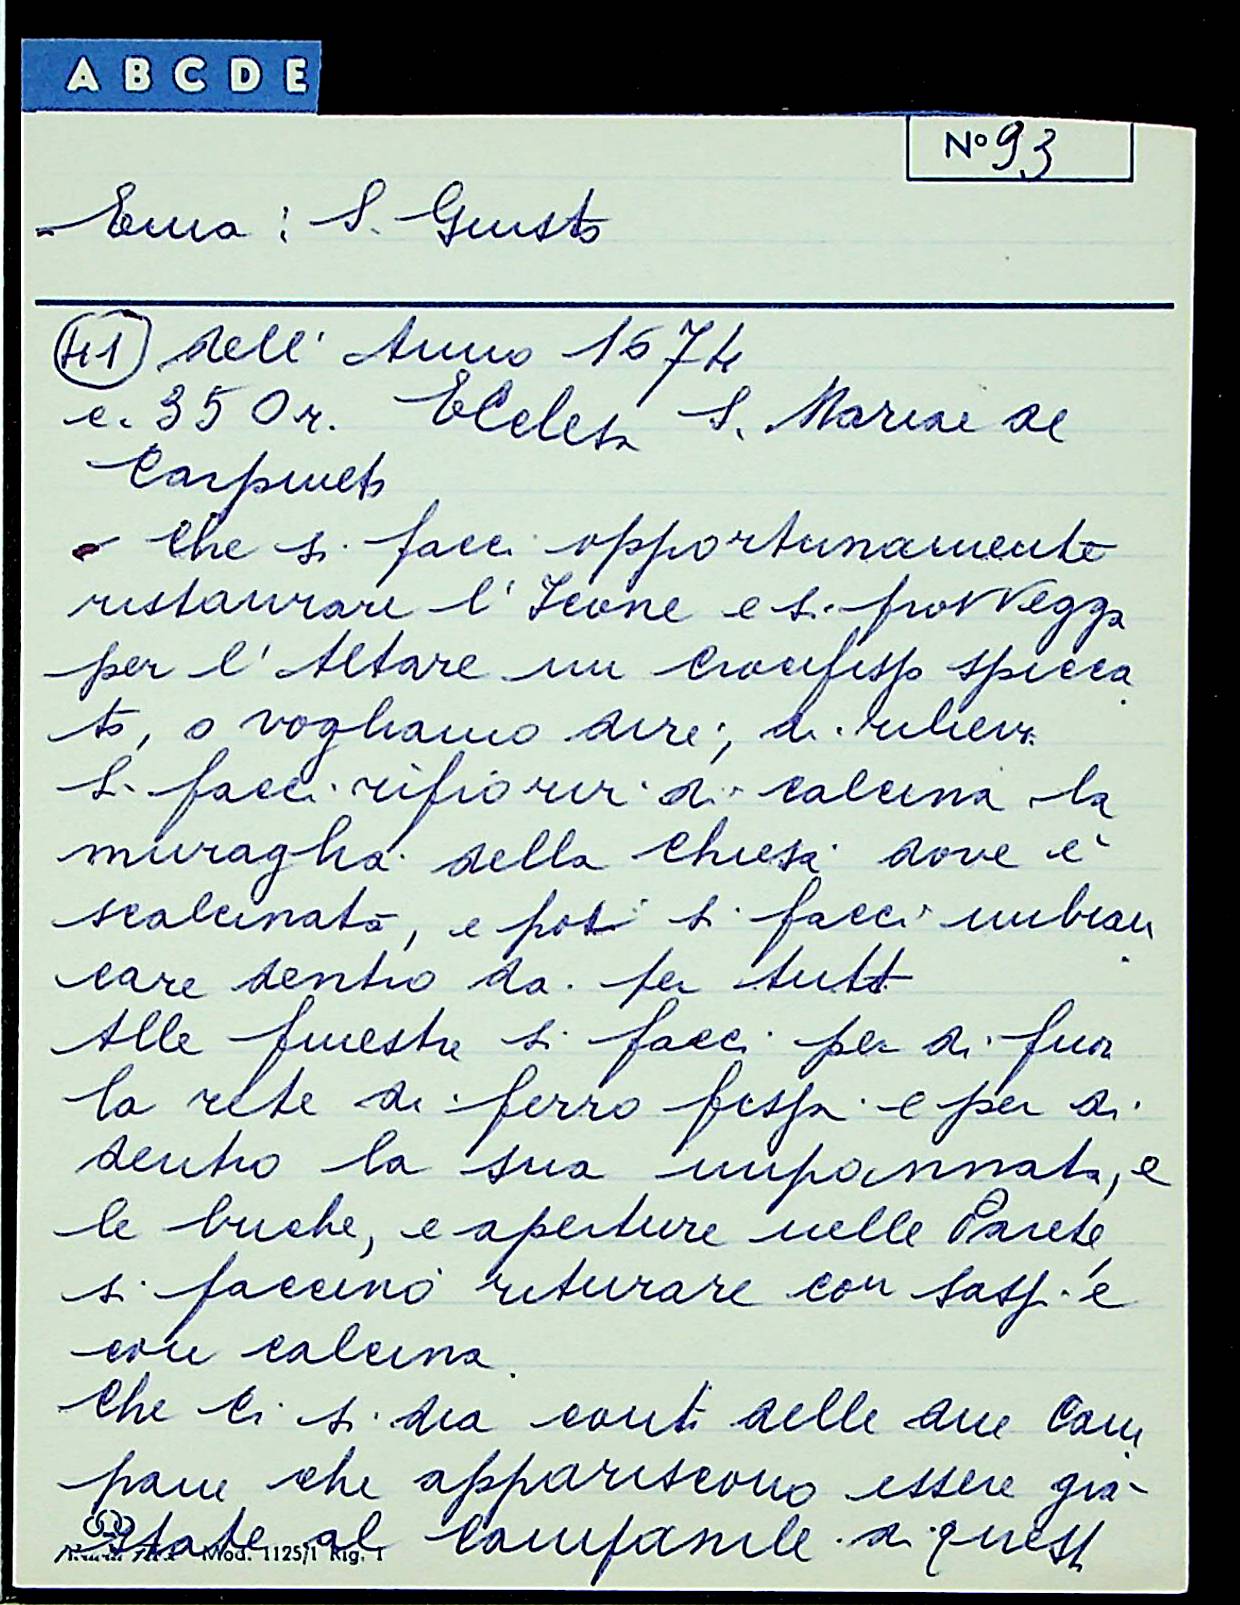 A B C D E
Nº 93
- Ema : S. Giusto
41 dell' Anno 1674
c. 350 r. Eclesa S. Mariae de
Carpineto
- Che si facci opportunamente
restaurare l'Icone e si provvegga
per l'Altare un Crocifisso spicca
to, o vogliamo dire, di rilievo.
Si facci rifiorir di calcina la
muraglia della Chiesa dove è
scalcinata, e poi si facci imbian
care dentro da per tutto
Alle finestre si facci per di fuori
la rete di ferro fissa e per di
dentro la sua impannata, e
le buche, e aperture nelle Parete,
si faccino riturare con sassi e
con calcina.
Che ci si dia conto delle due Cam
pane che appariscono essere già
state al Campanile di questa
Mod. 1125/1 Rig. 1